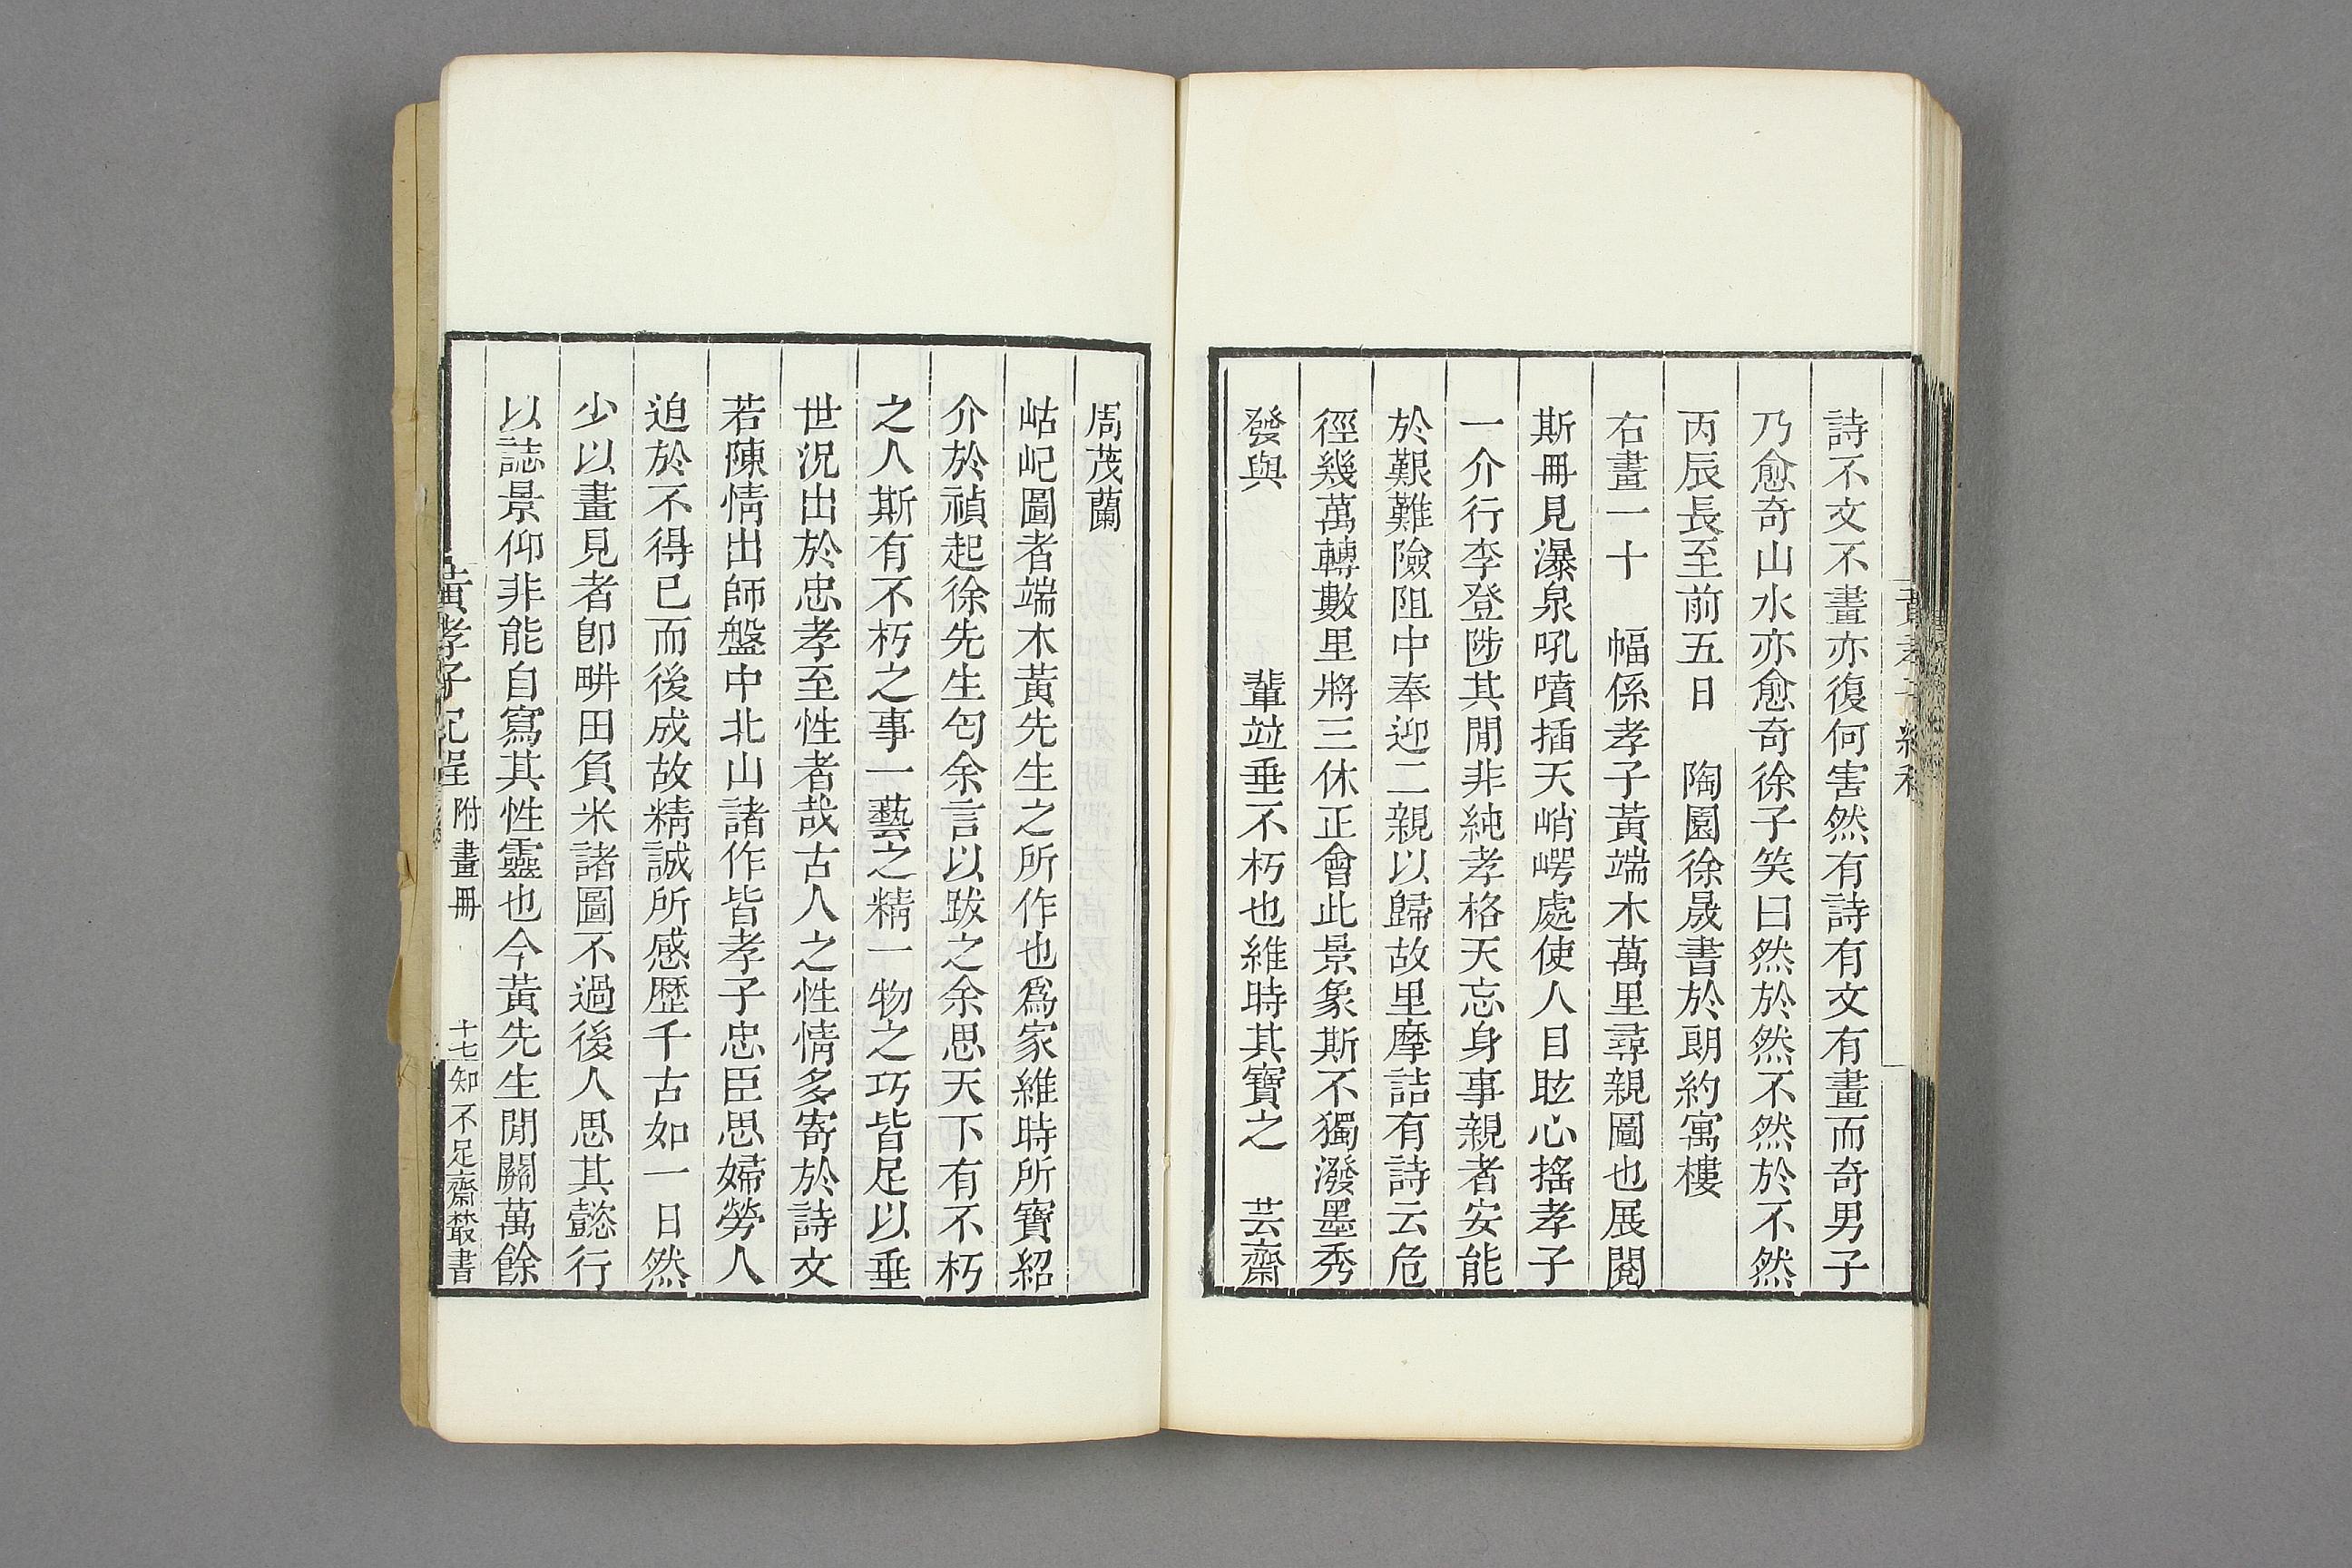 詩不文不畫亦復何害然有詩有文有畫而奇男子
乃愈奇山水亦愈奇徐子笑曰然於然不然於不然
丙辰長至前五日　陶園徐晟書於朗約寓樓
右畫一十　幅係孝子黃端木萬里尋親圖也展閱
斯冊見瀑泉吼噴插天峭崿處使人目眩心搖孝子
一介行李登陟其閒非純孝格天忘身事親者安能
於艱難險阻中奉迎二親以歸故里摩詰有詩云危
徑幾萬轉數里將三休正會此景象斯不獨潑墨秀
發與　　　　輩竝垂不朽也維時其寶之　芸齋
周茂蘭
岵屺圖者端木黃先生之所作也爲家維時所寶紹
介於禎起徐先生匄余言以跋之余思天下有不朽
之人斯有不朽之事一藝之精一物之巧皆足以垂
世況出於忠孝至性者哉古人之性情多寄於詩文
若陳情出師盤中北山諸作皆孝子忠臣思婦勞人
迫於不得已而後成故精誠所感歷千古如一日然
少以畫見者卽畊田負米諸圖不過後人思其懿行
以誌景仰非能自寫其性靈也今黃先生閒關萬餘
黃孝子紀程　附畫冊　十七　知不足齋叢書